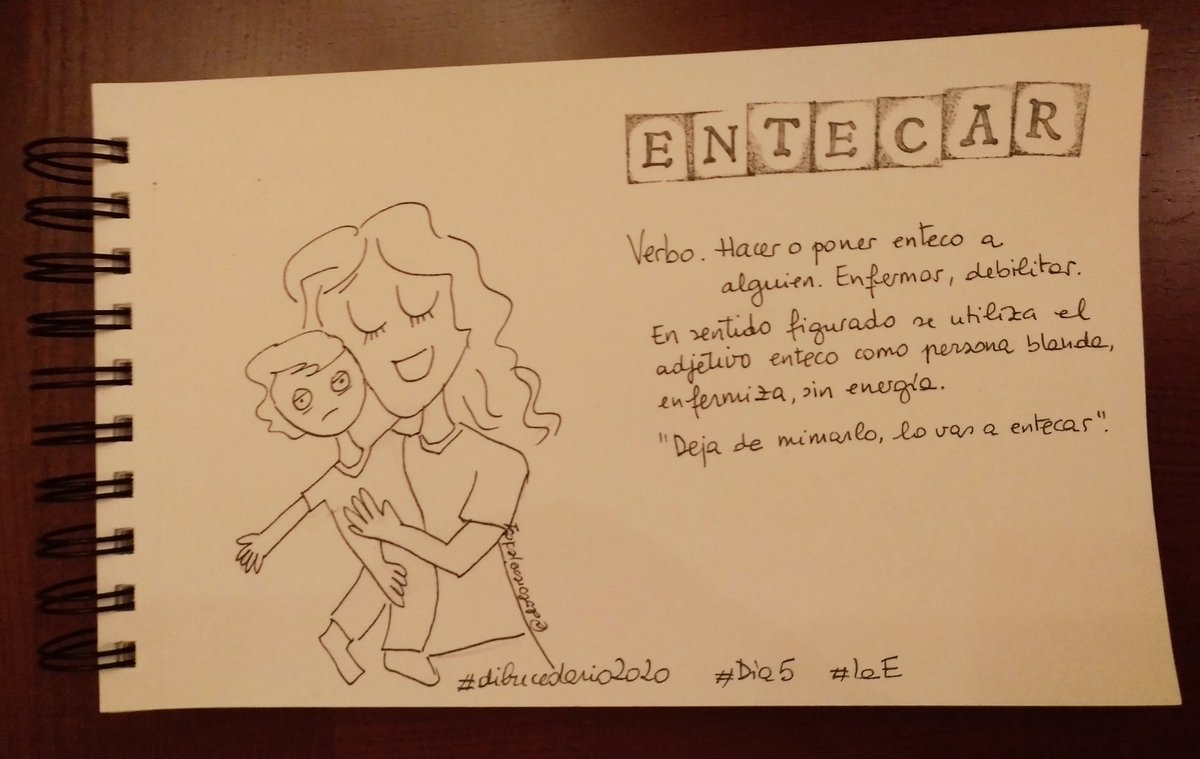 ENTECAR
Verbo. Hacer o poner enteco a
alguien. Enfermar, debilitar.
En sentido figurado se utiliza el
adjetivo enteco como persona blanda,
enfermiza, sin energía.
"Deja de mimarlo, lo vas a entecar".
#dibucedario2020 #Dia5 #laE